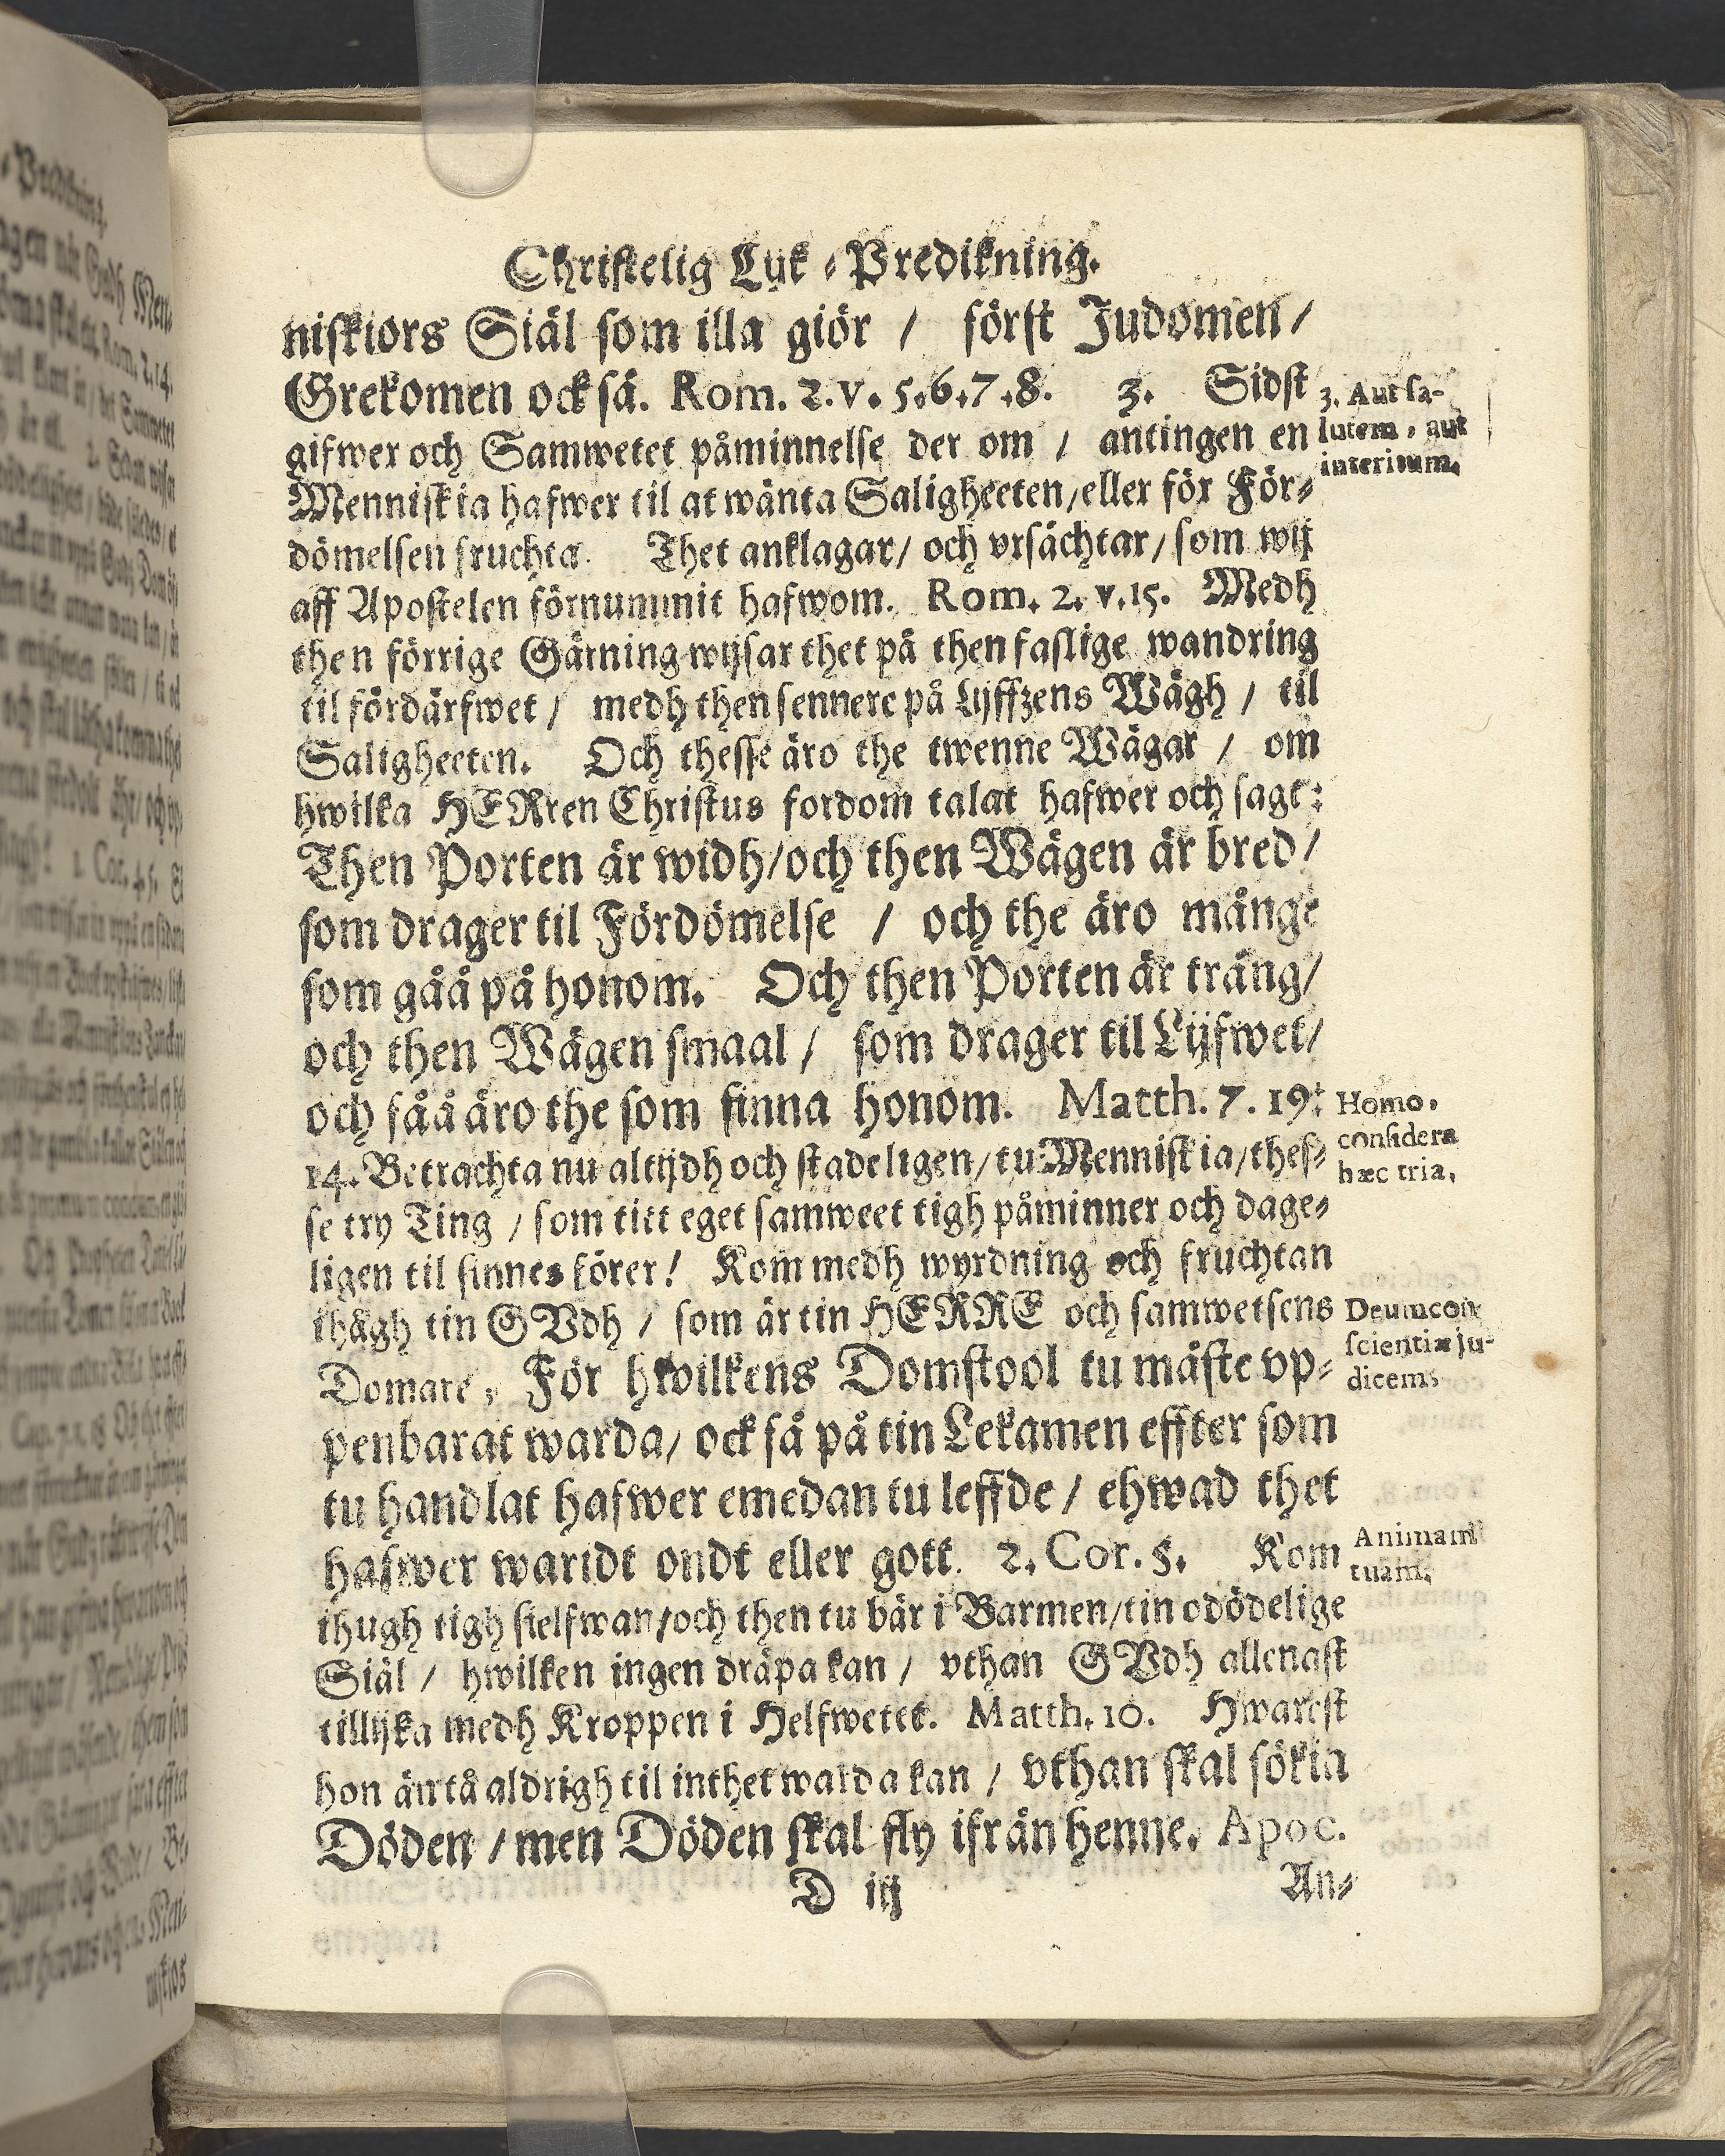 Christelig Lijk-Predikning.
niskiors Siäl som illa giör / först Judomen/
Grekomen ock så. Rom. 2. v. 5.6.7.8. 3. Sidst
gifwer och Samwetet påminnelse der om / antingen en
Menniskia hafwer til at wänta Saligheeten/eller för För-
dömelsen fruchta. Thet anklagar/ och vrsächtar/som wij
aff Apostelen förnummit hafwom. Rom. 2. v.15. Medh
then förrige Gärning wijsar thet på then faslige wandring
til fördärfwet / medh then sennere på Lijffzens Wägh / til
Saligheeten. Och thesse äro the twenne Wägar / om
hwilka HERren Christus fordom talat hafwer och sagt:
Then Porten är widh/och then Wägen är bred/
som drager til Fördömelse / och the äro månge
som gåå på honom. Och then Porten är trång/
och then Wägen smaal / som drager til Lijfwet/
och fåå äro the som finna honom. Matth. 7. 19:
14. Betrachta nu altijdh och stadeligen/tu Menniskia/thes-
se try Ting / som titt eget samweet tigh påminner och dage-
ligen til sinnes förer! Kom medh wyrdning och fruchtan
ihågh tin GVdh / som är tin HERRE och samwetsens
Domare, För hwilkens Domstool tu måste vp-
penbarat warda/ ock så på tin Lekamen effter som
tu handlat hafwer emedan tu leffde / ehwad thet
hafwer waridt ondt eller gott. 2. Cor. 5. Kom
ihugh tigh sielfwan/och then tu bär i Barmen/tin odödelige
Siäl / hwilken ingen dräpa kan / vthan GVdh allenast
tillijka medh Kroppen i Helfwetet. Matth. 10. Hwarest
hon än tå aldrigh til inthet warda kan / vthan skal sökia
Döden / men Döden skal fly ifrån henne. Apoc.
D iij An-
3. Aut sa-
lutem, aut
interitum.
Homo.
considera
hæc tria.
Deum con-
scientiæ ju-
dicem.
Animam
tuam.